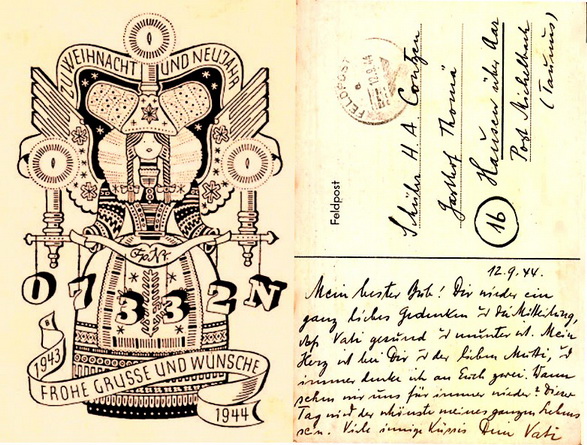 ZU WEIHNACHT UND NEUJAHR
FPNr
07332N
1943
FROHE GRÜSSE UND WÜNSCHE
1944
FELDPOST
12.9.44
Feldpost
Schüler H A Contzen
Gasthof Thomä
(16) Hausen über Aar
Post Michelbach
(Taunus)
12.9.44.
Mein bester Bub! Dir wieder ein
ganz liebes Gedenken u die Mitteilung,
daß Vati gesund u munter ist. Mein
Herz ist bei Dir u der lieben Mutti, u
immer denke ich an Euch zwei. Wann
sehen wir uns für immer wieder? Dieser
Tag wird der schönste meines ganzen Lebens
sein. Viele innige Küssis Dein Vati